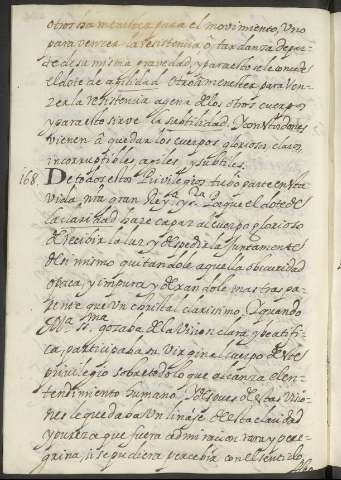 otro sea menester para el movimiento, Uno
para vencer la resistencia o tardanza de par-
te de su misma gravedad, y para esto se le concede
el dote de agilidad. Otro es menester para ven-
zer la resistencia agena de los otros cuerpos
y para esto sirve la suptilidad. Y con estos dones
vienen à quedar los cuerpos gloriosos claros,
incorruptibles, agiles y subtiles.
168. De todos estos Privilegios tubo parte en esta
vida, nra gran Reyna, y Sra. Porque el dote de
la claridad haze capaz al cuerpo glorioso
de recibir la luz y despedirla juntamente
de si mismo quitandole aquella obscuridad
opaca, y impura y dexandole mas traspa-
rente que Un christal clarissimo. Y quando
Ma. SSma. gozaba de la Vision clara y beatifi-
ca, participaba su Virginal cuerpo de este
privilegio sobre todo lo que alcanza el en-
tendimiento humano. Y despues de estas Visio-
nes le quedaba Un linaje de esta claridad
y pureza que fuera admiracion rara y pere-
grina, si se pudiera percebir con el sentido.